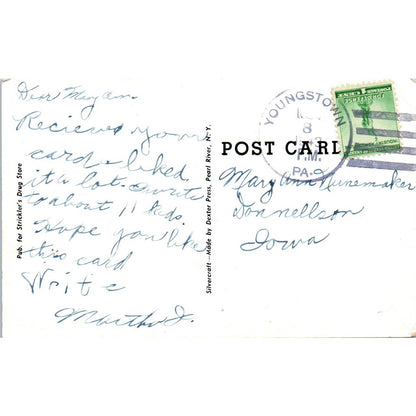 Dear Mary Ann.
Recieved your
card & liked
it a lot. I write
to about 11 kids.
Hope you like
this card
Write
Martha J.
Pub. for Strickler's Drug Store
Silvercraft—Made by Dexter Press, Pearl River, N.Y.
POST CARD
YOUNGSTOWN
8
P.M.
PA.
Mary Ann Nunemaker
Donnellson
Iowa